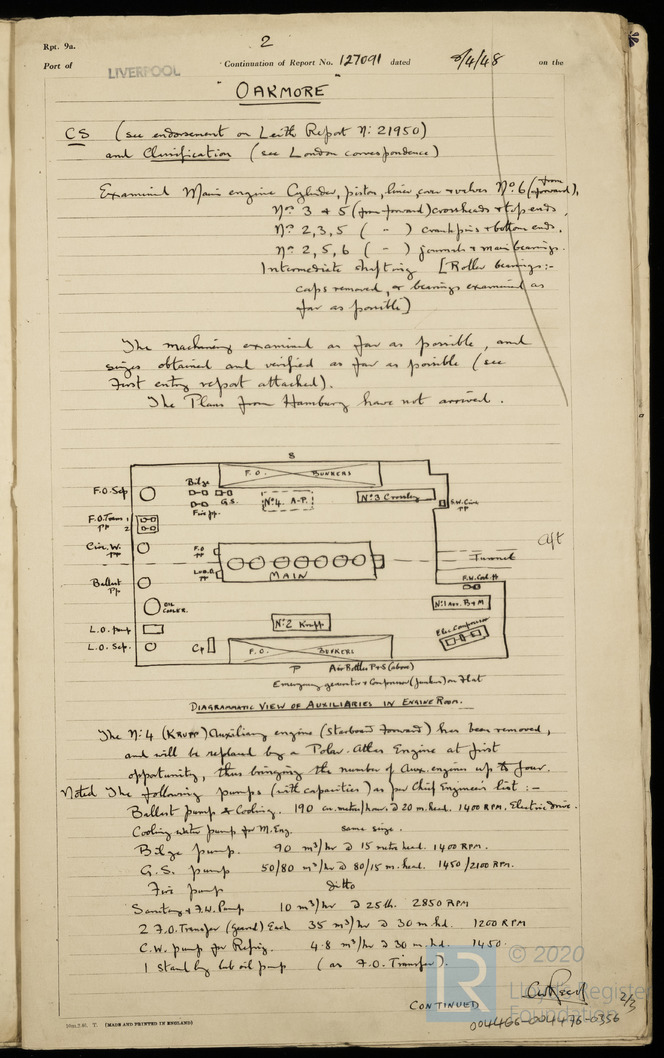 Rpt. 9a.
2
Port of LIVERPOOL Continuation of Report No. 127091 dated 8/4/48 on the
"OAKMORE"
CS (see endorsement on Leith Report No: 21950)
and Classification (see London correspondence)
Examined Main engine Cylinder, piston, liner, cover & valves No. 6 (from forward),
Nos. 3 & 5 (from forward) crossheads & top ends,
Nos. 2, 3, 5 ( - ) crankpins & bottom ends.
Nos. 2, 5, 6 ( - ) journals & main bearings.
Intermediate shafting [Roller bearings:-
caps removed, or bearings examined as
far as possible]
The machinery examined as far as possible, and
sizes obtained and verified as far as possible (see
First entry report attached).
The Plans from Hamburg have not arrived.
S
F.O. BUNKERS
F.O. Sep
Bilge
G.S.
Fire pp.
No. 4. A-P.
No. 3 Crossley
S.W. Circ pp
F.O. Trans 1
pp 2
Circ. W. pp
F.O pp
Aft
Tunnel
MAIN
Ballast Pp
L.O.
pp
F.W. Cool.
OIL COOLER.
No. 1 Aux. B & M
L.O. pump
No. 2 Krupp
Elec. Compressor
L.O. Sep.
F.O. BUNKERS
P Air Bottles P & S (above)
Emergency generator & Compressor (Junkers) on Flat
DIAGRAMMATIC VIEW OF AUXILIARIES IN ENGINE ROOM.
The No. 4 (KRUPP) Auxiliary engine (Starboard forward) has been removed,
and will be replaced by a Polar-Atlas Engine at first
opportunity, thus bringing the number of Aux. engines up to four.
Noted The following pumps (with capacities) as per Chief Engineer's list :-
Ballast pump & Cooling. 190 cu. metres/hour. @ 20 m. head. 1400 RPM. Electric drive.
Cooling water pump for M. Eng. same size.
Bilge pump. 90 m³/hr @ 15 metre head. 1400 RPM.
G.S. pump 50/80 m³/hr @ 80/15 m. head. 1450/2100 RPM.
Fire pump ditto
Sanitary & F.W. Pump 10 m³/hr @ 25 lb. 2850 RPM
2 F.O. Transfer (Geared) Each 35 m³/hr @ 30 m. hd. 1200 RPM
C.W. pump for Refrig. 4.8 m³/hr @ 30 m. hd. 1450.
1 Stand by lub oil pump (as F.O. Transfer).
© 2020
Lloyd's Register
Foundation
LR
CONTINUED
2/2
004466-004476-0356
T. (MADE AND PRINTED IN ENGLAND)